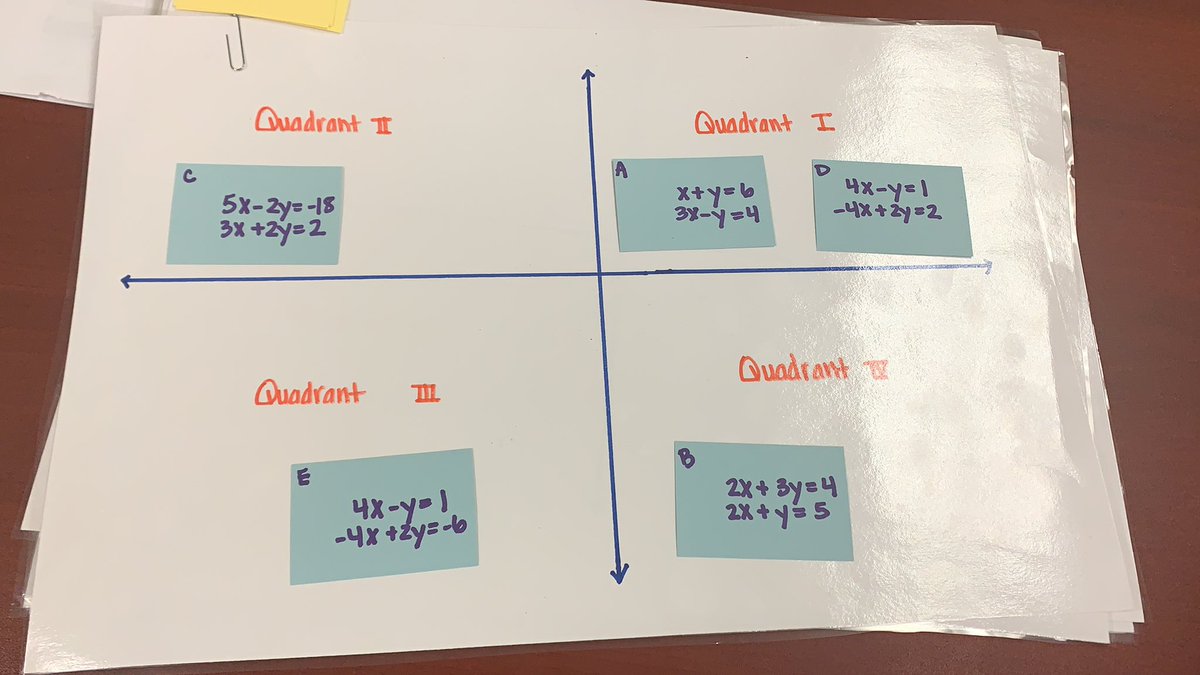 Quadrant II
C
5x-2y=-18
3x+2y=2
Quadrant I
A
x+y=6
3x-y=4
D
4x-y=1
-4x+2y=2
Quadrant III
E
4x-y=1
-4x+2y=-6
Quadrant IV
B
2x+3y=4
2x+y=5